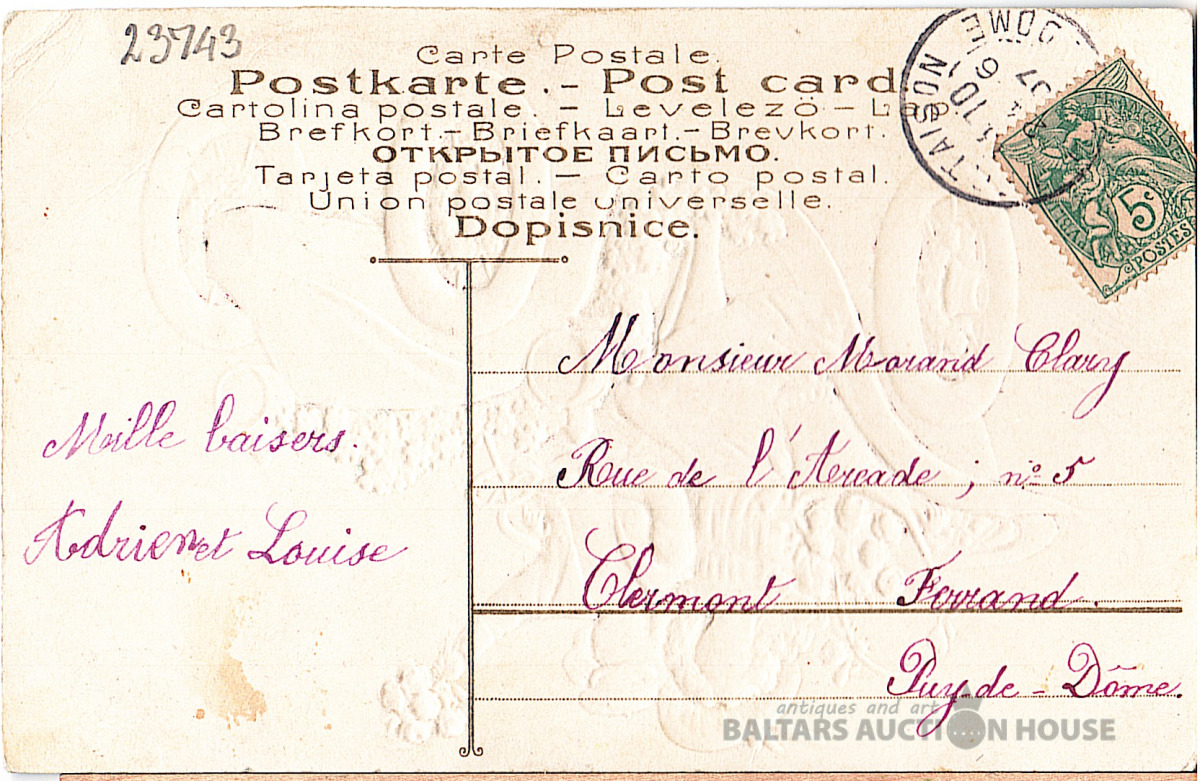 23743
Carte Postale.
Postkarte.- Post card
Cartolina postale. - Levelezö - Lap.
Brefkort.- Briefkaart.- Brevkort.
ОТКРЫТОЕ ПИСЬМО.
Tarjeta postal. - Carto postal.
Union postale universelle.
Dopisnice.
DOME
5c
POSTES
Monsieur Morand Clary
Rue de l'Arcade ; no 5
Clermont Ferrand.
Puy-de-Dôme.
Mille baisers.
Adrien et Louise
antiques and art
BALTARS AUCTION HOUSE